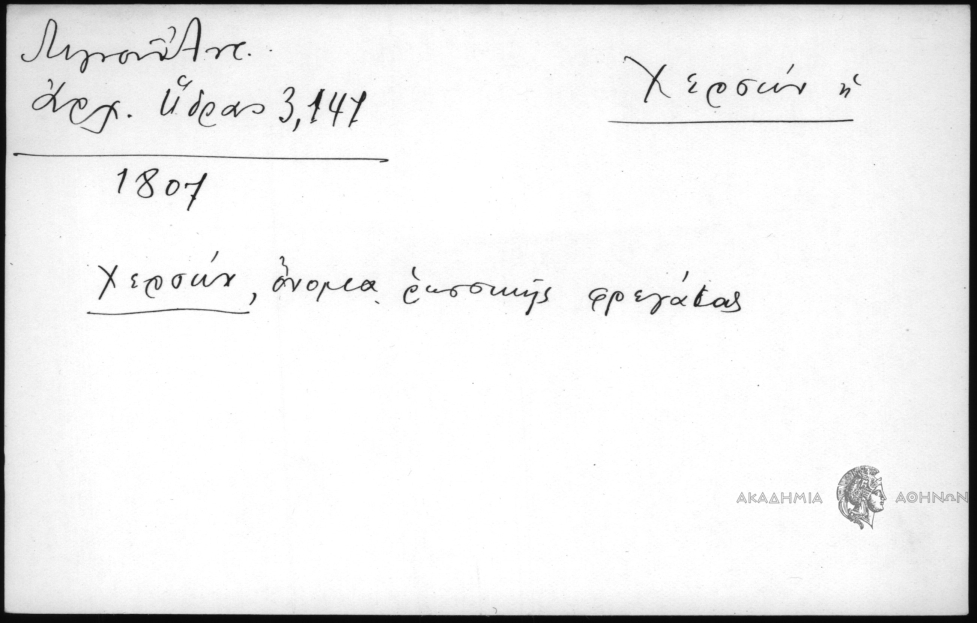 Λιγνοῦ Ἀντ.
ἀρχ. Ὕδρας 3,141
Χερσών ἡ
1807
Χερσών, ὄνομα ῥωσσικῆς φρεγάτας
ΑΚΑΔΗΜΙΑ ΑΘΗΝΩΝ